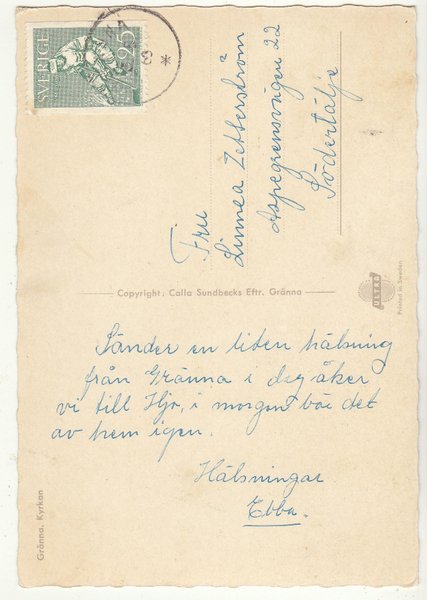 SVERIGE
25
Fru
Linnea Zetterström
Aspegrensvägen 22
Södertälje
Copyright: Calla Sundbecks Eftr. Gränna
ULTRA
Printed in Sweden
Sänder en liten hälsning
från Gränna i dag åker
vi till Hjo, i morgon bär det
av hem igen.
Hälsningar
Ebba.
Gränna. Kyrkan